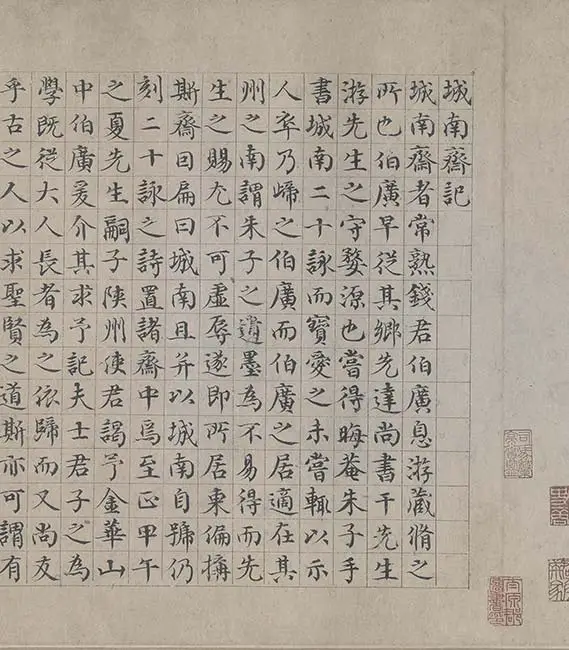 城南齋記
城南齋者常熟錢君伯廣息游藏脩之
所也伯廣早從其鄉先達尚書干先生
游先生之守婺源也嘗得晦菴朱子手
書城南二十詠而寶愛之未嘗輒以示
人卒乃歸之伯廣而伯廣之居適在其
州之南謂朱子之遺墨為不易得而先
生之賜尤不可虛辱遂即所居東偏搆
斯齋曰扁曰城南且并以城南自號仍
刻二十詠之詩置諸齋中焉至正甲午
之夏先生嗣子陝州使君謁予金華山
中伯廣爰介其求予記夫士君子之為
學既從大人長者為之依歸而又尚友
乎古之人以求聖賢之道斯亦可謂有